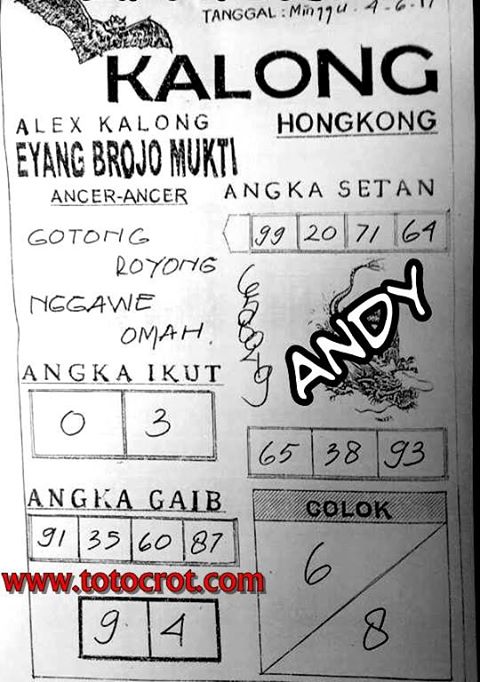 TANGGAL: Minggu. 4-6-17
KALONG
ALEX KALONG
HONGKONG
EYANG BROJO MUKTI
ANCER-ANCER
ANGKA SETAN
GOTONG
ROYONG
NGGAWE
OMAH.
99 20 71 64
ANDY
ANGKA IKUT
0 3
65 38 93
ANGKA GAIB
91 35 60 87
COLOK
6
8
www.totocrot.com
9 4